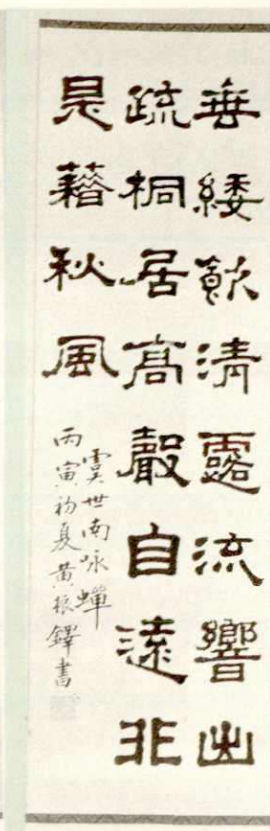 垂緌飲清露流響出
疏桐居高聲自遠非
是藉秋風
虞世南咏蟬
丙寅初夏黃振鐸書